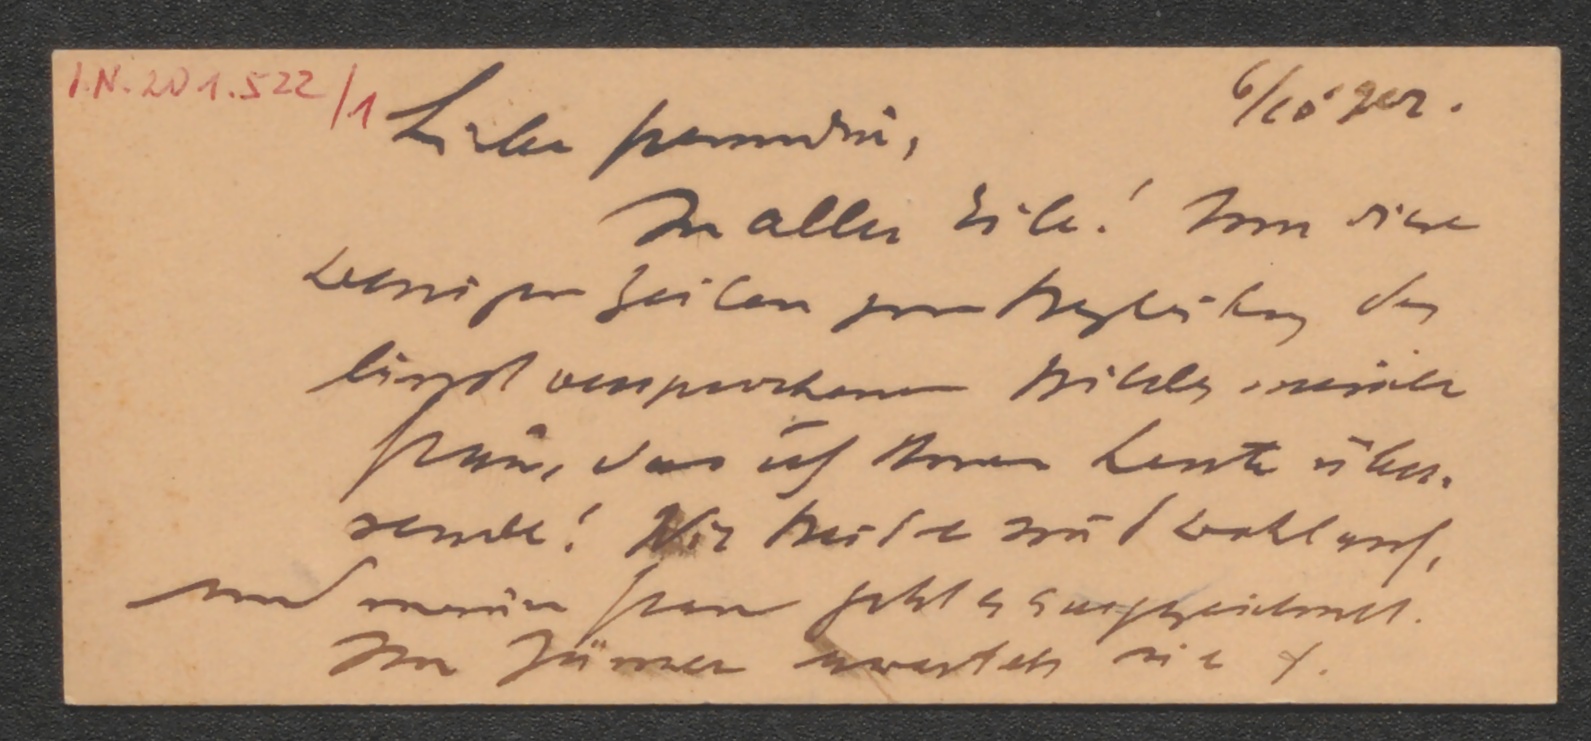 I.N. 201.522/1
6/10 902.
Liebe Freundin,
In aller Eile! Nur diese
wenigen Zeilen zur Begleitung des
längst versprochenen Bildes meiner
Frau, das ich Ihnen heute über-
sende! Wir beide sind wohlauf,
und meiner Frau geht es ausgezeichnet.
Im Jänner erwartet sie